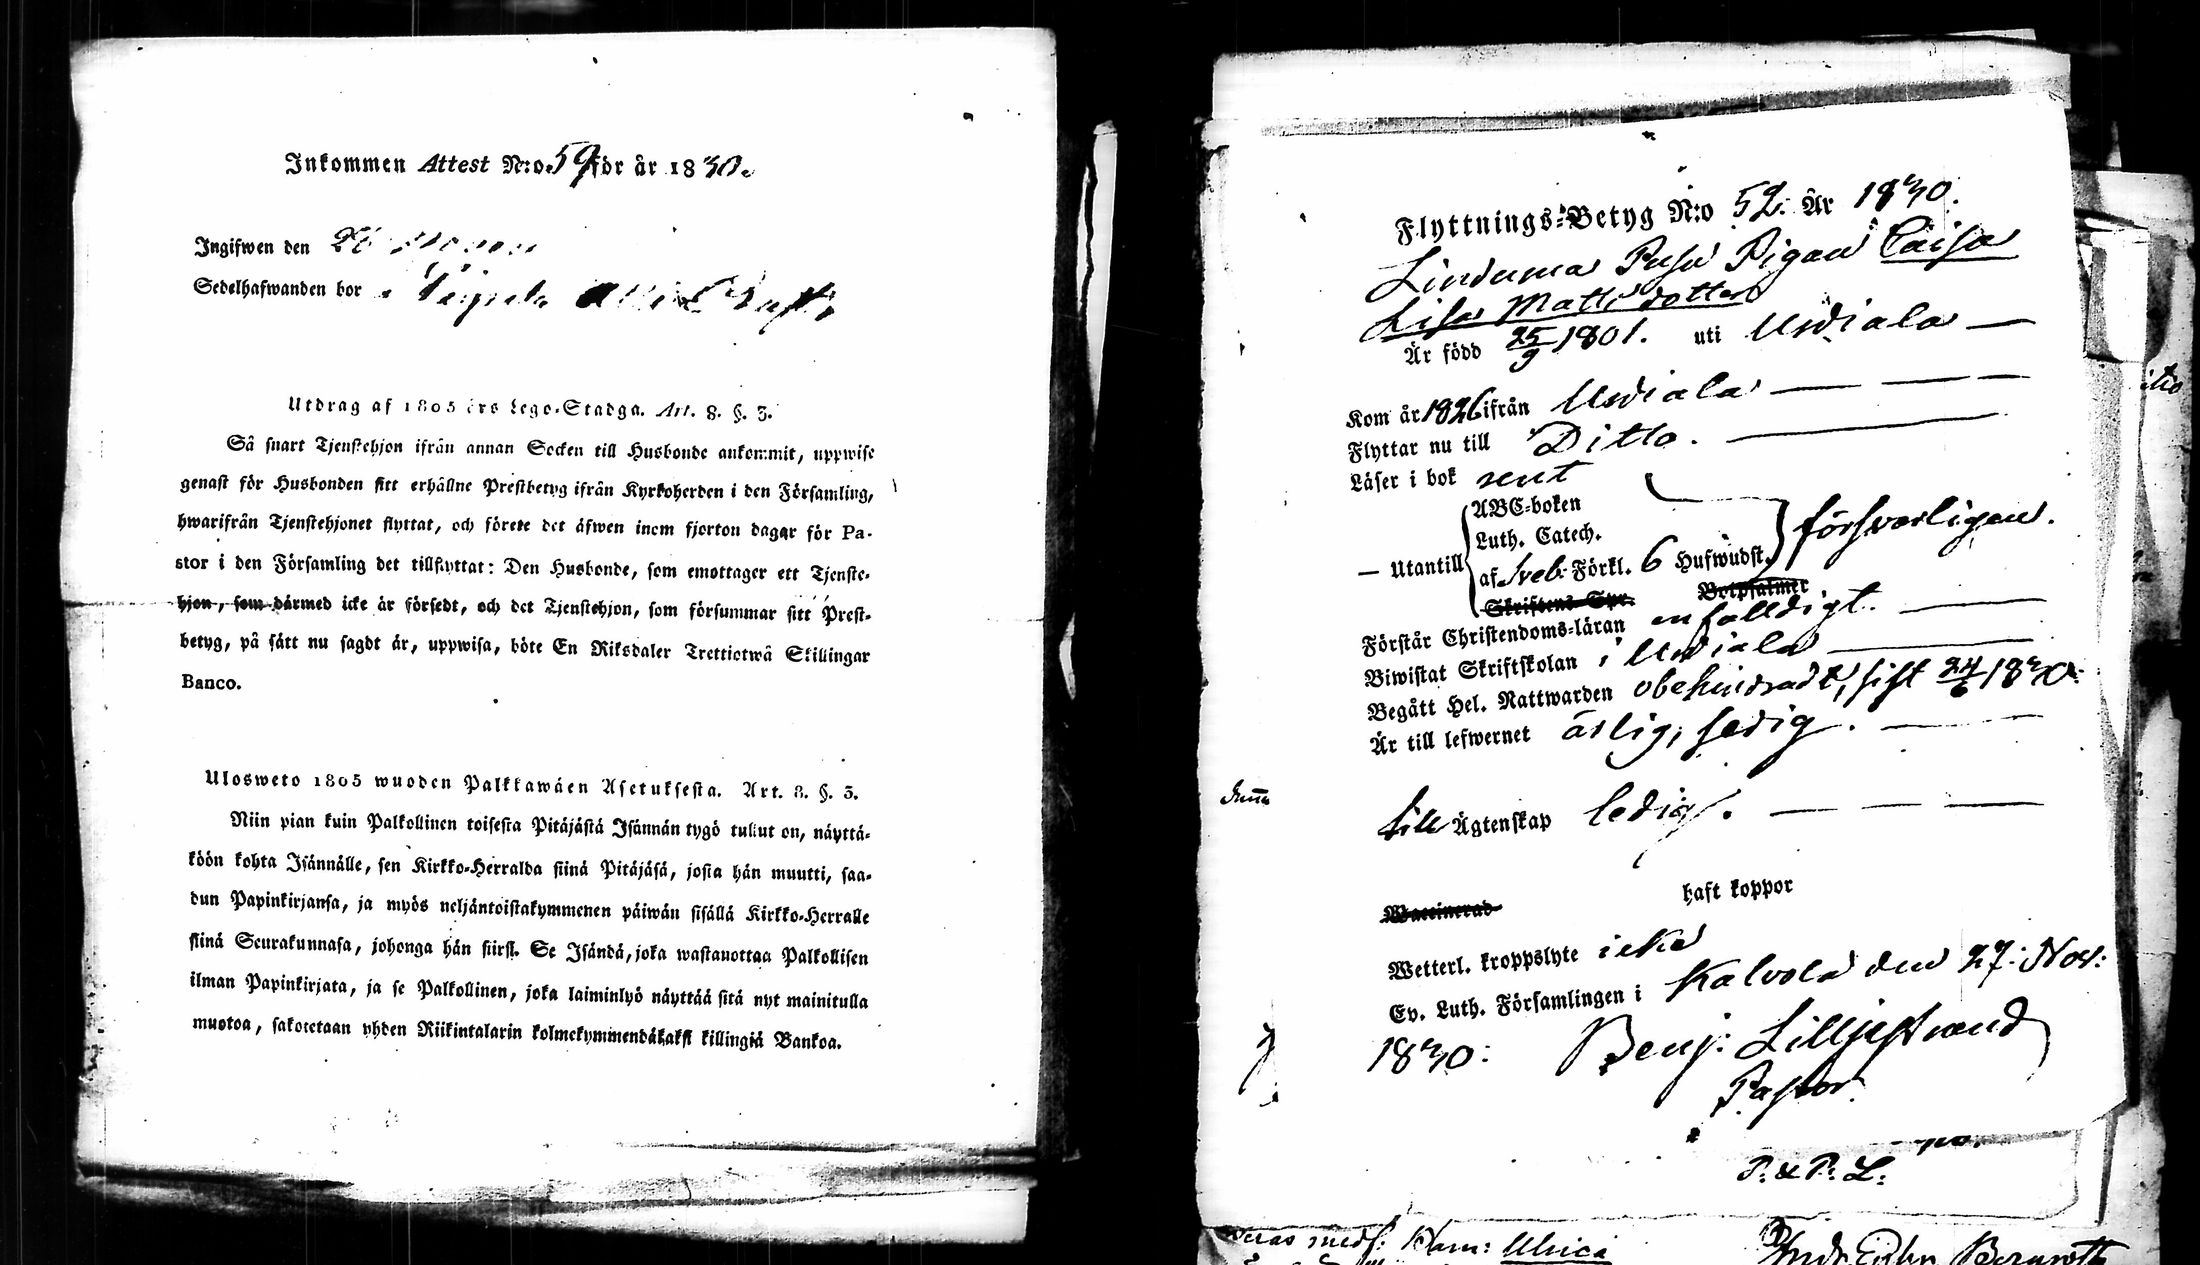 Inkommen Attest N:o 59 för år 1830.
Ingifwen den
Sedelhafwanden bor i
Utdrag af 1805 års Lego-Stadga. Art. 8. §. 3.
Så snart Tjenstehjon ifrån annan Socken till Husbonde ankommit, uppwise
genast för Husbonden sitt erhållne Prestbetyg ifrån Kyrkoherden i den Församling,
hwarifrån Tjenstehjonet flyttat, och förete det äfwen inom fjorton dagar för Pa-
stor i den Församling det tillflyttat: Den Husbonde, som emottager ett Tjenste-
hjon, som därmed icke är försedt, och det Tjenstehjon, som försummar sitt Prest-
betyg, på sätt nu sagdt är, uppwisa, böte En Riksdaler Trettiotwå Skillingar
Banco.
Ulosweto 1805 wuoden Palkkawäen Asetuksesta. Art. 8. §. 3.
Niin pian kuin Palkollinen toisesta Pitäjästä Isännän tygö tullut on, näyttä-
köön kohta Isännälle, sen Kirkko-Herralda siinä Pitäjäsä, josta hän muutti, saa-
dun Papinkirjansa, ja myös neljäntoistakymmenen päiwän sisällä Kirkko-Herralle
siinä Seurakunnasa, johonga hän siirsi. Se Isändä, joka wastanottaa Palkollisen
ilman Papinkirjata, ja se Palkollinen, joka laiminlyö näyttää sitä nyt mainitulla
muotoa, sakotetaan yhden Riikintalarin kolmekymmendäkaksi killingiä Bankoa.
Flyttnings-Betyg N:o 52. År 1830.
Linduma Pusu Pigan Caisa
Lisa Matts dotter
Är född 25/9 1801. uti Urdiala —
Kom år 1826 ifrån Urdiala — — —
Flyttar nu till Ditto. —
Läser i bok rent
ABC-boken
Luth. Catech.
— Utantill af Sveb. Förkl. 6 Hufwudst. försvarligen.
Skriftens Spr. Botpsalmer
Förstår Christendoms-läran enfalldigt. —
Biwistat Skriftskolan i Urdiala —
Begått Hel. Nattwarden obehindradt, sist 24/6 1830.
Är till lefwernet ärlig, sedig. — —
till Ägtenskap ledig. — — —
Waccinerad haft koppor
Wetterl. kroppslyte icke
Ev. Luth. Församlingen i Kalvola den 27: Nov:
1830: Benj: Lilljestrand
Pastor.
P: & P: L:
medf: Ulrica